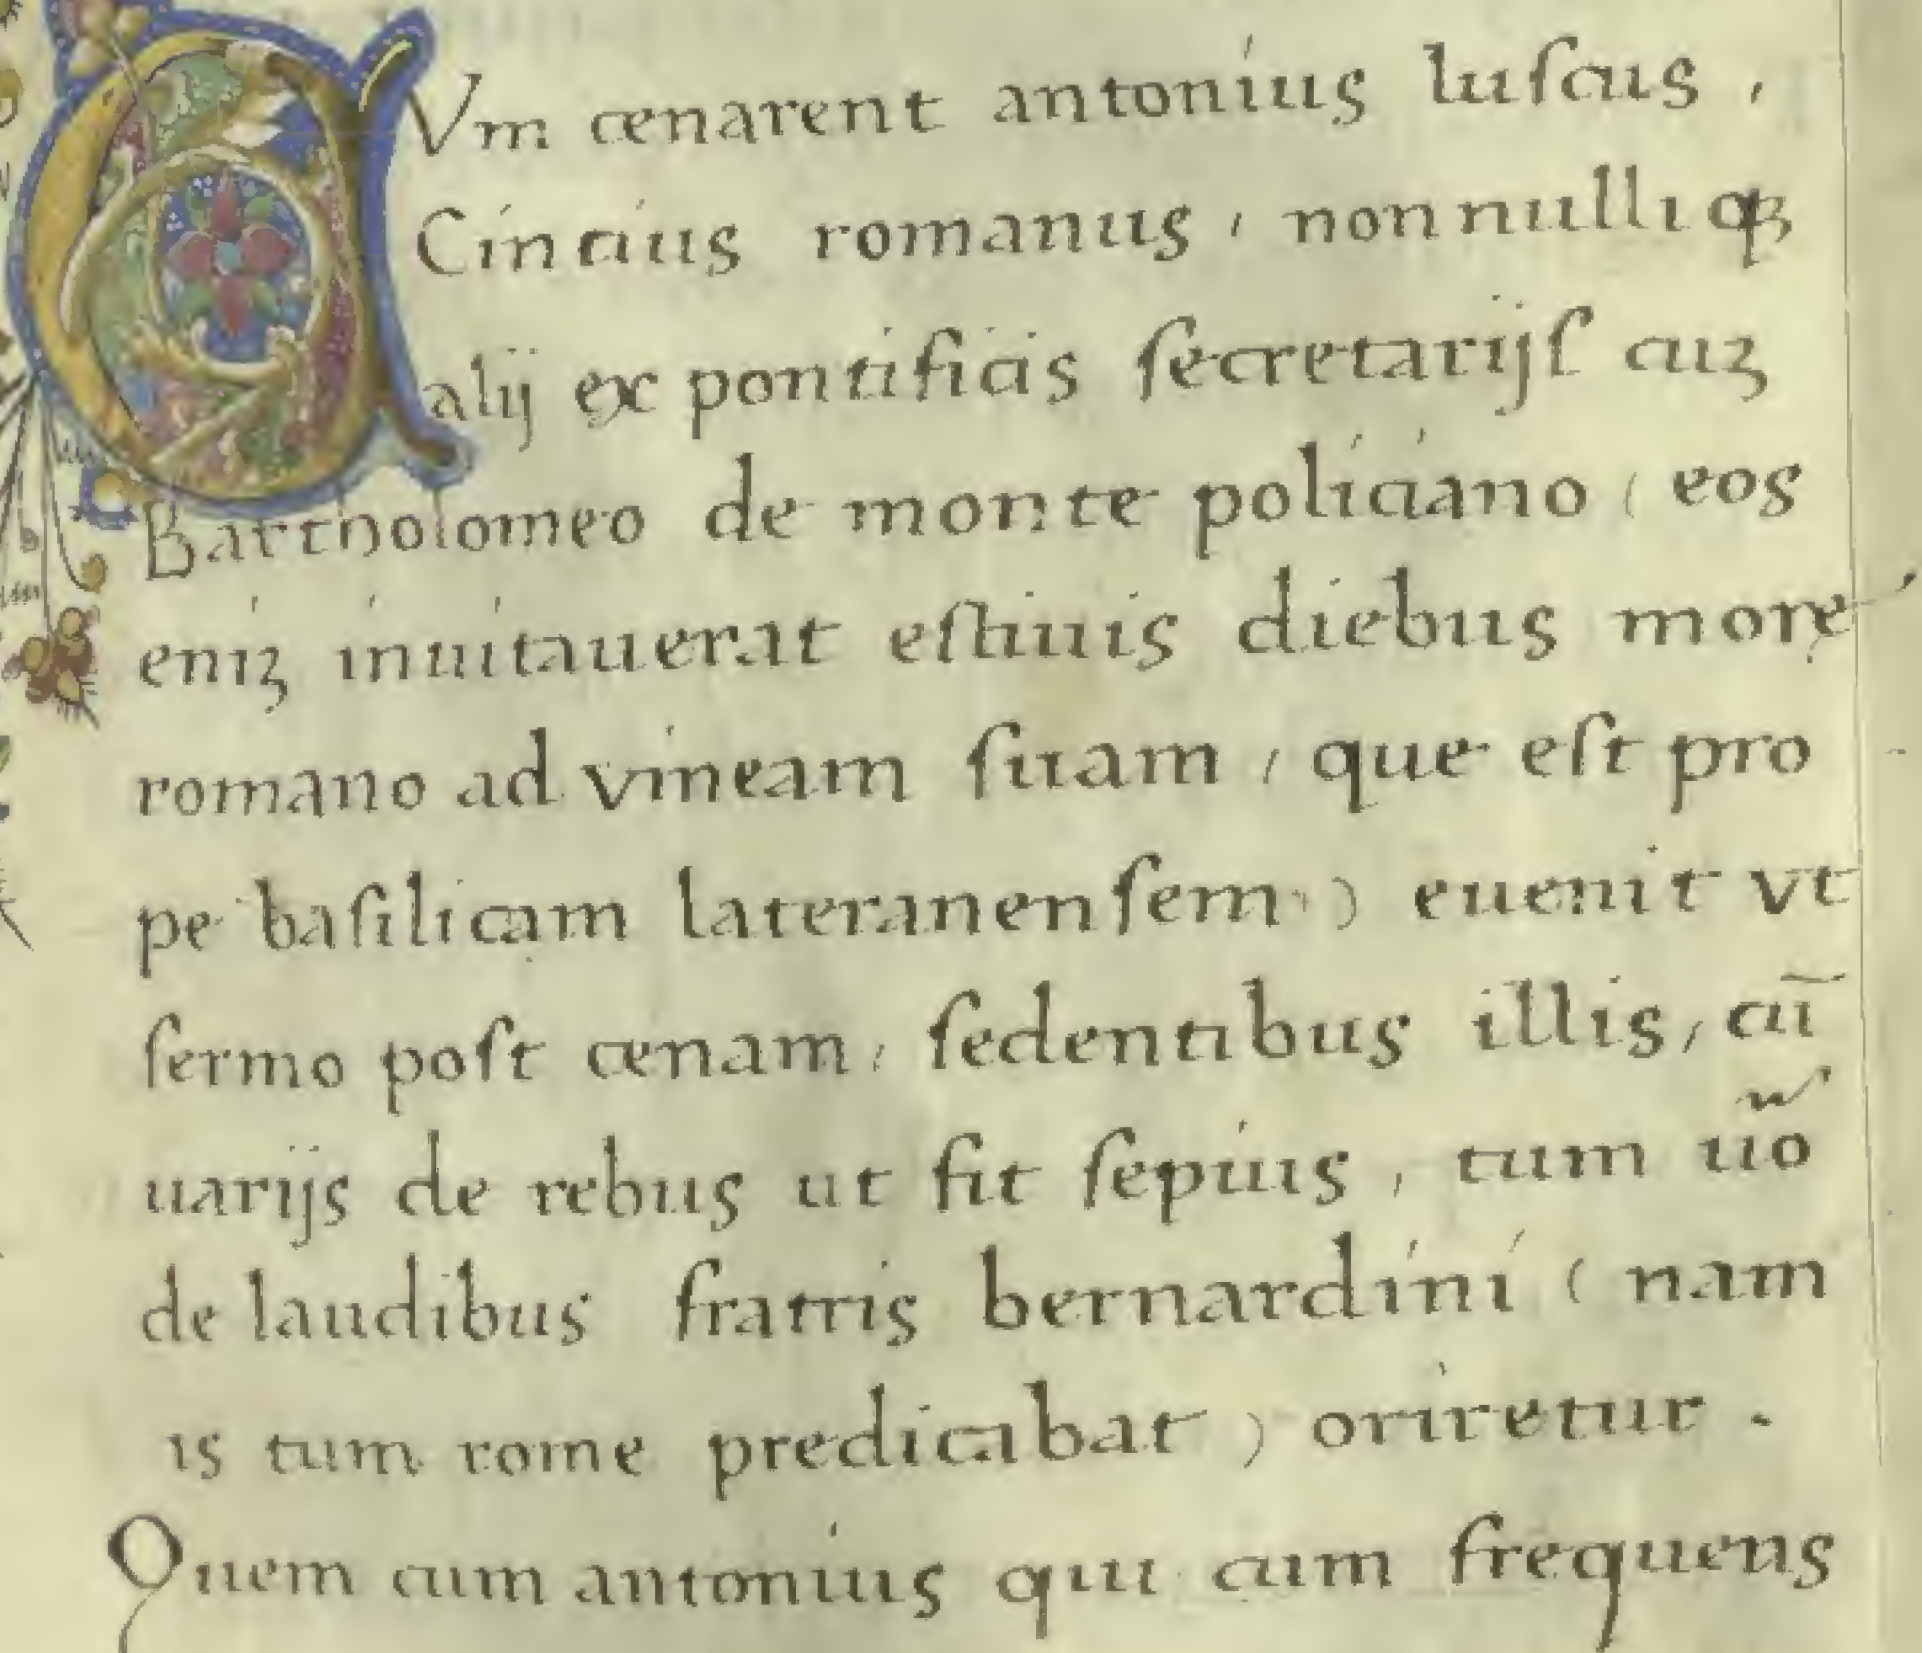 CVm cenarent antonius luſcus,
Cincius romanus, nonnulliqꝫ
alij ex pontificis ſecretarijſ cuꝫ
Bartholomeo de monte policiano (eos
eniꝫ inuitauerat eſtiuis diebus more
romano ad vineam ſuam, que eſt pro
pe baſilicam lateranenſem) euenit vt
ſermo poſt cenam, ſedentibus illis, cū
uarijs de rebus ut fit ſepius, tum uo̅
de laudibus fratris bernardini (nam
is tum rome predicabat) oriretur.
Quem cum antonius qui cum frequens